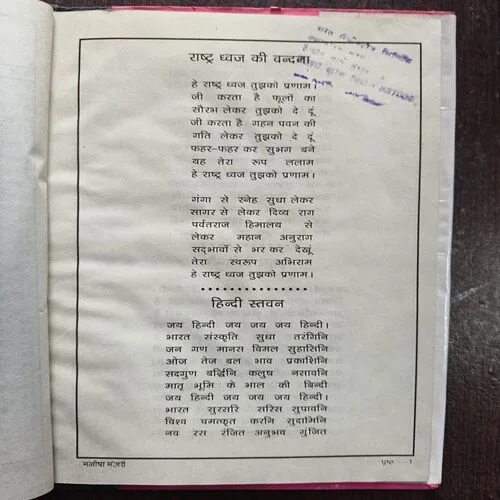 राष्ट्र ध्वज की वन्दना
हे राष्ट्र ध्वज तुझको प्रणाम।
जी करता है फूलों का
सौरभ लेकर तुझको दे दूं
जी करता है गहन पवन की
गति लेकर तुझको दे दूं
फहर-फहर कर सुभग बने
यह तेरा रूप ललाम
हे राष्ट्र ध्वज तुझको प्रणाम।
गंगा से स्नेह सुधा लेकर
सागर से लेकर दिव्य राग
पर्वतराज हिमालय से
लेकर महान अनुराग
सद्भावों से भर कर देखूं
तेरा स्वरूप अभिराम
हे राष्ट्र ध्वज तुझको प्रणाम।
हिन्दी स्तवन
जय हिन्दी जय जय जय हिन्दी।
भारत संस्कृति सुधा तरंगिनि
जन गण मानस विमल सुहासिनि
ओज तेज बल भाव प्रकाशिनि
सदगुण बर्द्धिनि कलुष नसावनि
मातृ भूमि के भाल की बिन्दी
जय हिन्दी जय जय जय हिन्दी।
भारत सुरसरि सरिस सुपावनि
विश्व चमत्कृत करनि सुदामिनि
नव रस रंजित अनुभव गुंजित
मनीषा मंजरी
पृष्ठ 1